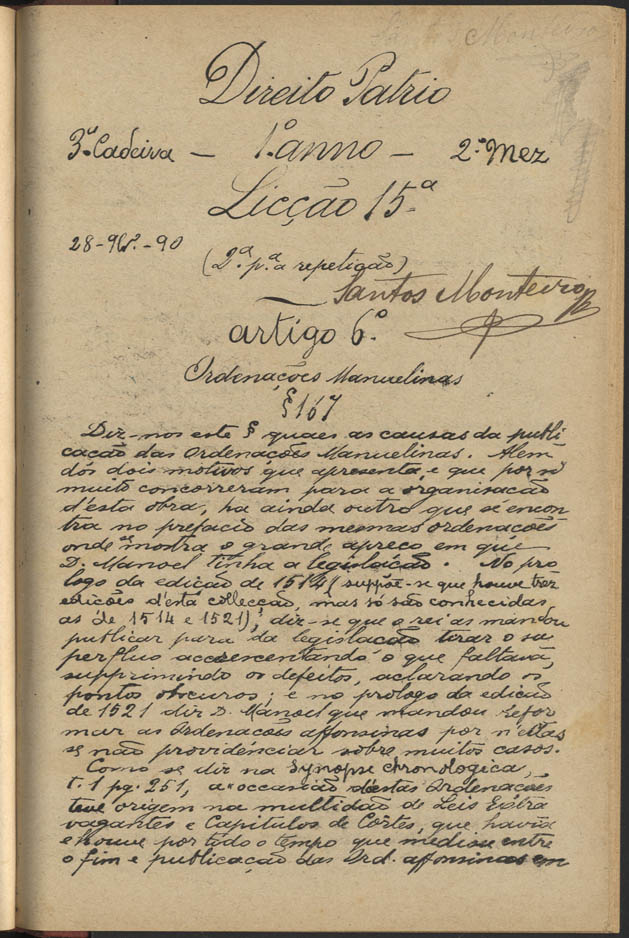 Santos Monteiro
Direito Patrio
3ª Cadeira – 1º anno – 2º Mez
Licção 15ª
28-9bº-90
(2ª p.ª a repetição)
Santos Monteiro
artigo 6º
Ordenações Manuelinas
§ 167
Diz-nos este § quaes as causas da publi
cação das Ordenações Manuelinas. Alem
dós dois motivos que apresenta, e que por si
muito concorreram para a organisação
d'esta obra, ha ainda outro que se encon
tra no prefacio das mesmas ordenações
onde se mostra o grande apreço em que
D. Manoel tinha a legislação. No pro
logo da edição de 1514 (suppõe-se que houve trez
edições d'esta collecção, mas só são conhecidas
as de 1514 e 1521), diz-se que o rei as mandou
publicar para da legislação tirar o su
perfluo accrescentando o que faltava,
supprimindo os defeitos, aclarando os
pontos obscuros; e no prologo da edição
de 1521 diz D. Manoel que mandou refor
mar as Ordenações affonsinas por n'ellas
se não providenciar sobre muitos casos.
Como se diz na Synopse chronologica,
t. 1 pg. 251, a occasião d'estas Ordenações
teve origem na multidão de Leis Extra
vagantes e Capitulos de Côrtes, que havia
e houve por todo o tempo que mediou entre
o fim e publicação das Ord. affonsinas em